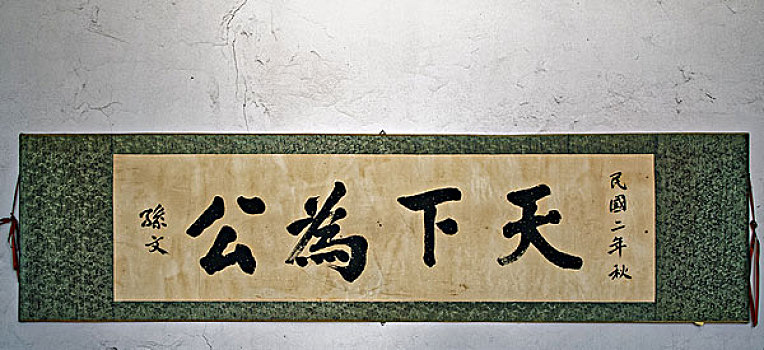 民國二年秋
天下為公
孫文